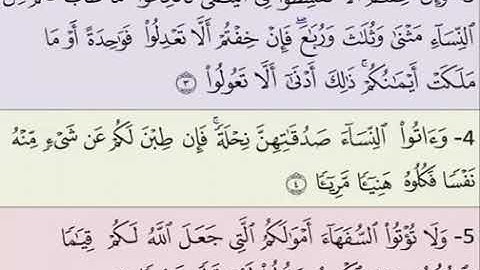 النِّسَآءِ مَثْنَىٰ وَثُلَـٰثَ وَرُبَـٰعَ ۖ فَإِنْ خِفْتُمْ أَلَّا تَعْدِلُوا۟ فَوَٰحِدَةً أَوْ مَا
مَلَكَتْ أَيْمَـٰنُكُمْ ۚ ذَٰلِكَ أَدْنَىٰٓ أَلَّا تَعُولُوا۟ ٣
4- وَءَاتُوا۟ النِّسَآءَ صَدُقَـٰتِهِنَّ نِحْلَةً ۚ فَإِن طِبْنَ لَكُمْ عَن شَىْءٍ مِّنْهُ
نَفْسًا فَكُلُوهُ هَنِيٓـًٔا مَّرِيٓـًٔا ٤
5- وَلَا تُؤْتُوا۟ السُّفَهَآءَ أَمْوَٰلَكُمُ الَّتِى جَعَلَ اللَّهُ لَكُمْ قِيَـٰمًا